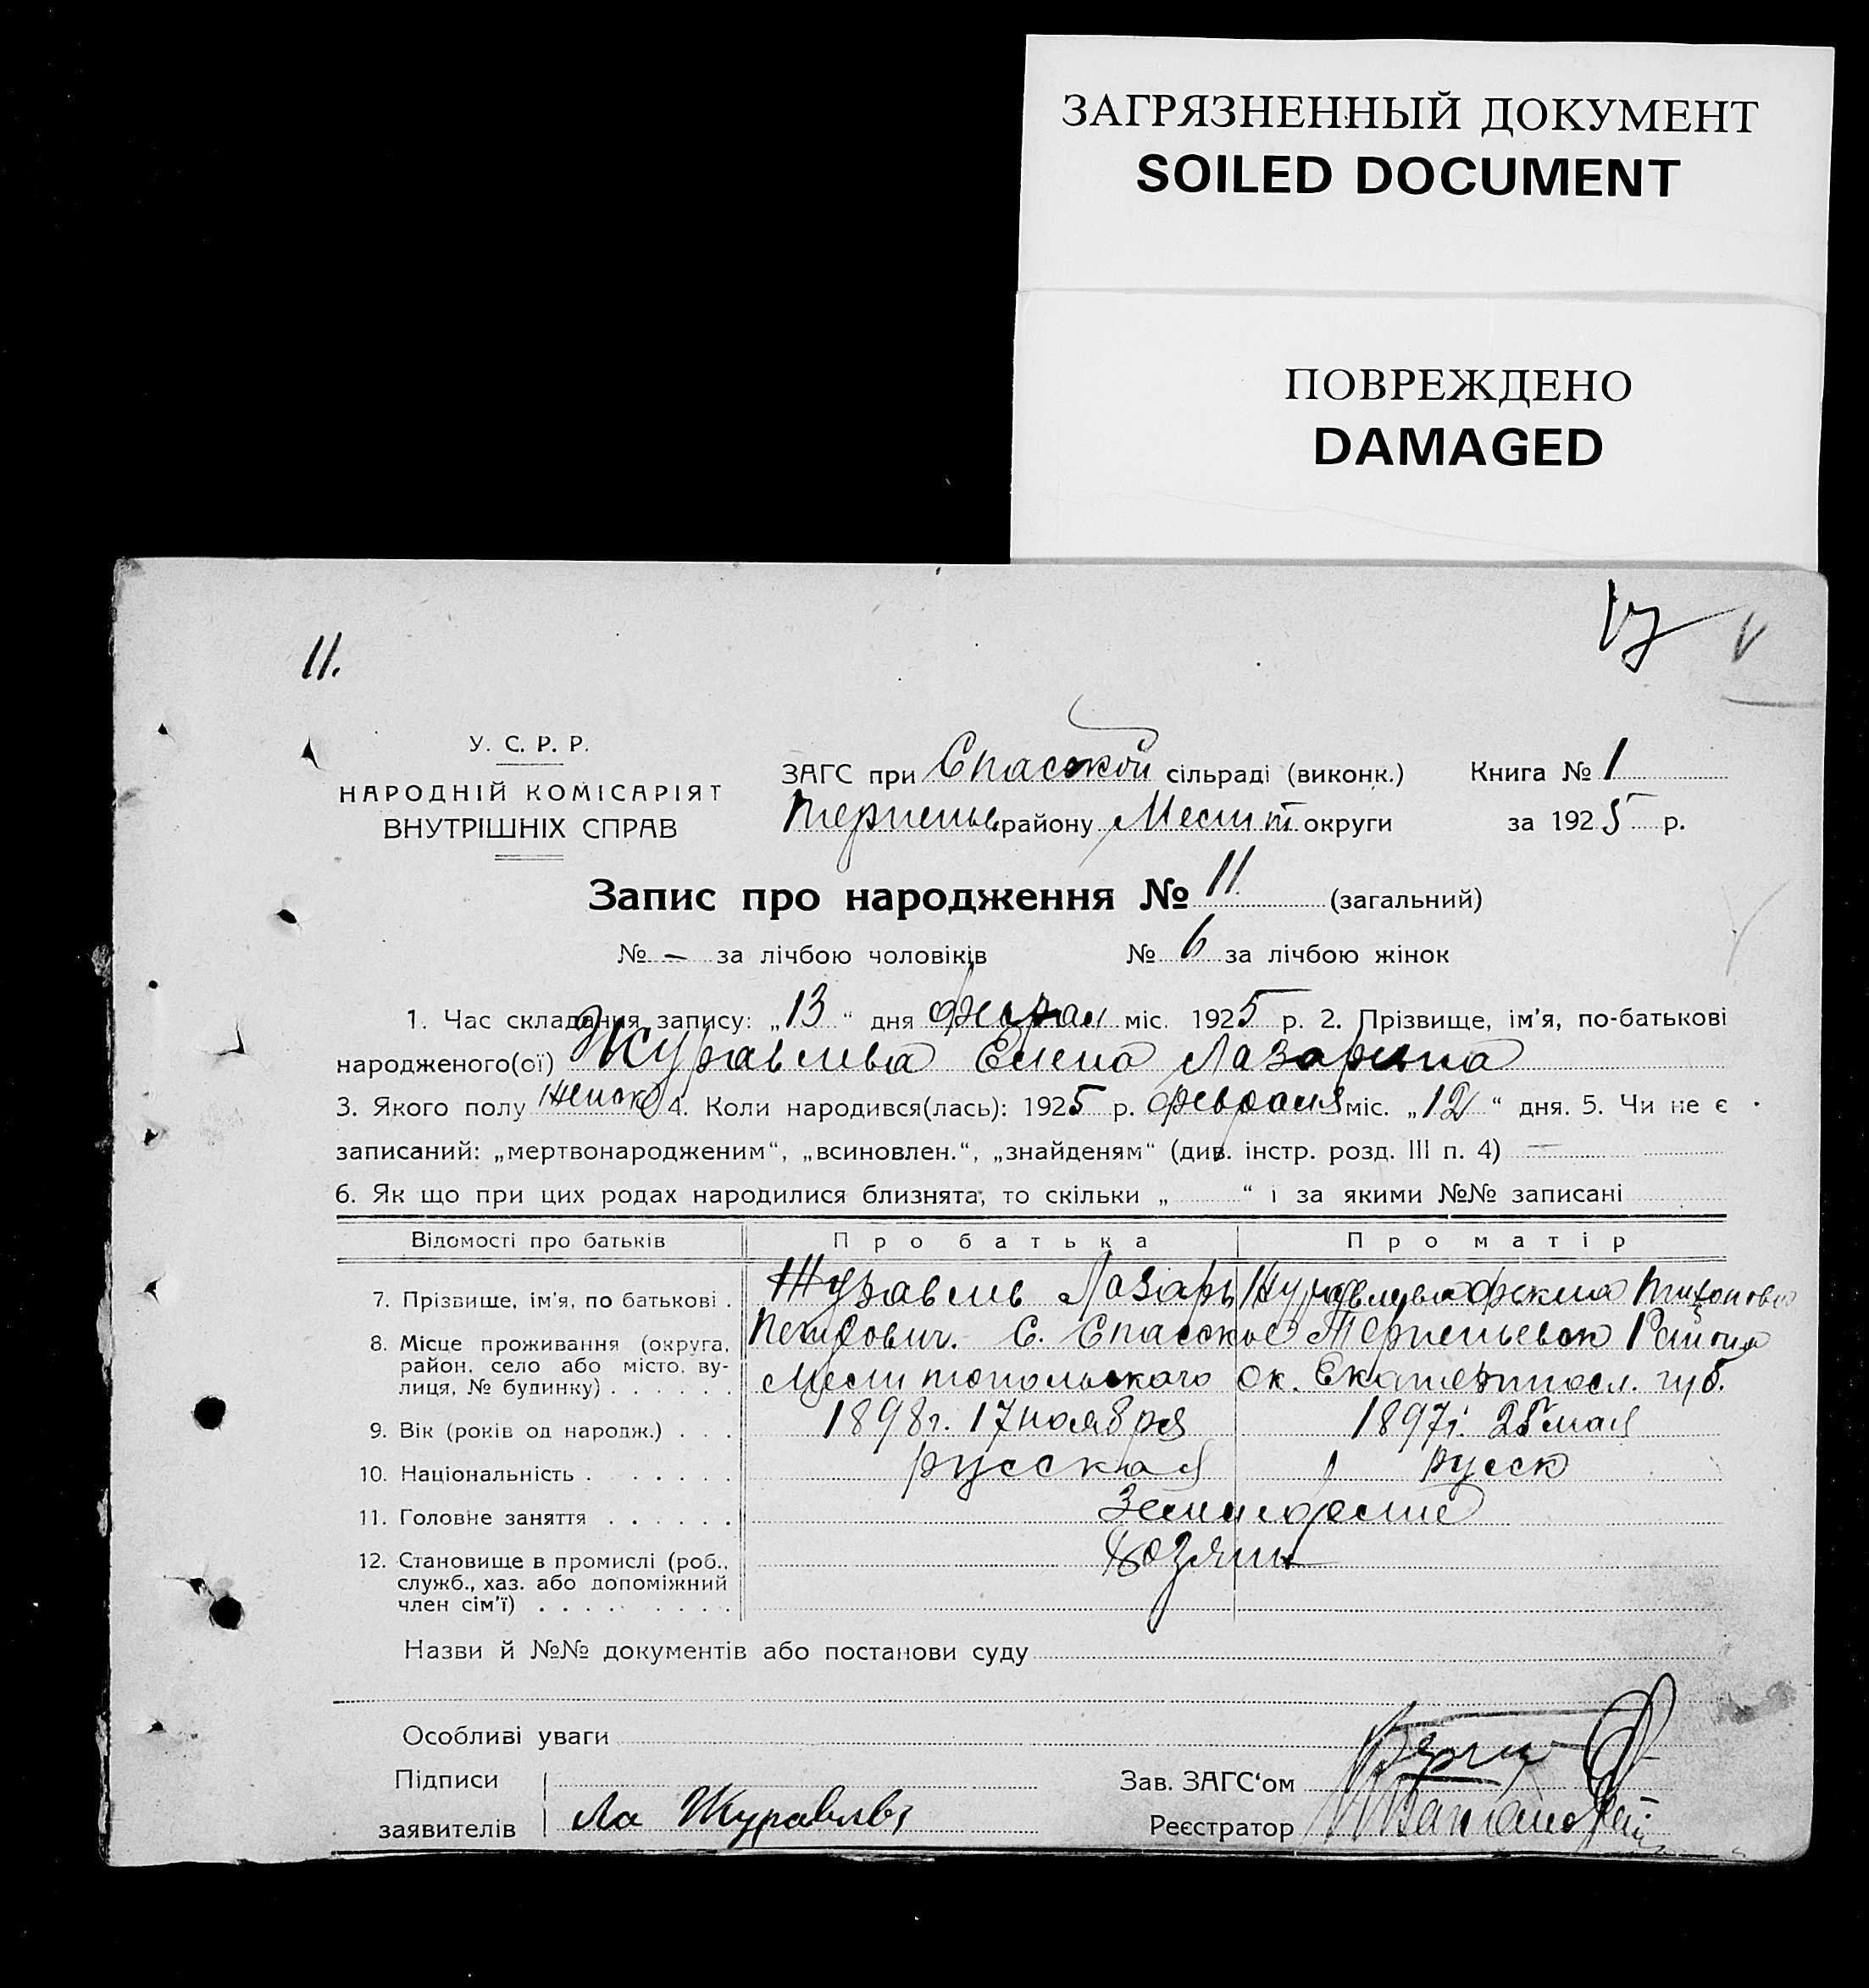 ЗАГРЯЗНЕННЫЙ ДОКУМЕНТ
SOILED DOCUMENT
ПОВРЕЖДЕНО
DAMAGED
11.
У. С. Р. Р.
НАРОДНІЙ КОМІСАРІЯТ
ВНУТРІШНІХ СПРАВ
ЗАГС при Спасской сільраді (виконк.) Книга № 1
району Мелит округи за 1925 р.
Запис про народження № 11 (загальний)
№ — за лічбою чоловіків № 6 за лічбою жінок
1. Час складання запису: „13“ дня феврал міс. 1925 р. 2. Прізвище, ім'я, по-батькові
народженого(ої) Журавлева Елена Лазарьна
3. Якого полу женск 4. Коли народився(лась): 1925 р. февраля міс. „12“ дня. 5. Чи не є
записаний: „мертвонародженим“, „всиновлен.“, „знайденям“ (див. інстр. розд. III п. 4) —
6. Як що при цих родах народилися близнята, то скільки „ “ і за якими №№ записані
Відомості про батьків Про батька Про матір
7. Прізвище, ім'я, по батькові . Журавль Лазарь Журавлева Фекла Тихоновна
8. Місце проживання (округа, район, село або місто, вулиця, № будинку) . . . . . . С. Спасское Терпеньевск Района
Мелитопольского Ок. Екатериносл. губ.
9. Вік (років од народж.) . . . 1898г. 17 ноября 1897г. 25 мая
10. Національність . . . . . . русская русск
11. Головне заняття . . . . . . Земледелие
12. Становище в промислі (роб., служб., хаз. або допоміжний член сім'ї) . . . . . . . . . Хозяин
Назви й №№ документів або постанови суду
Особливі уваги
Підписи
Зав. ЗАГС'ом
заявителів Ла Журавлвъ Реєстратор